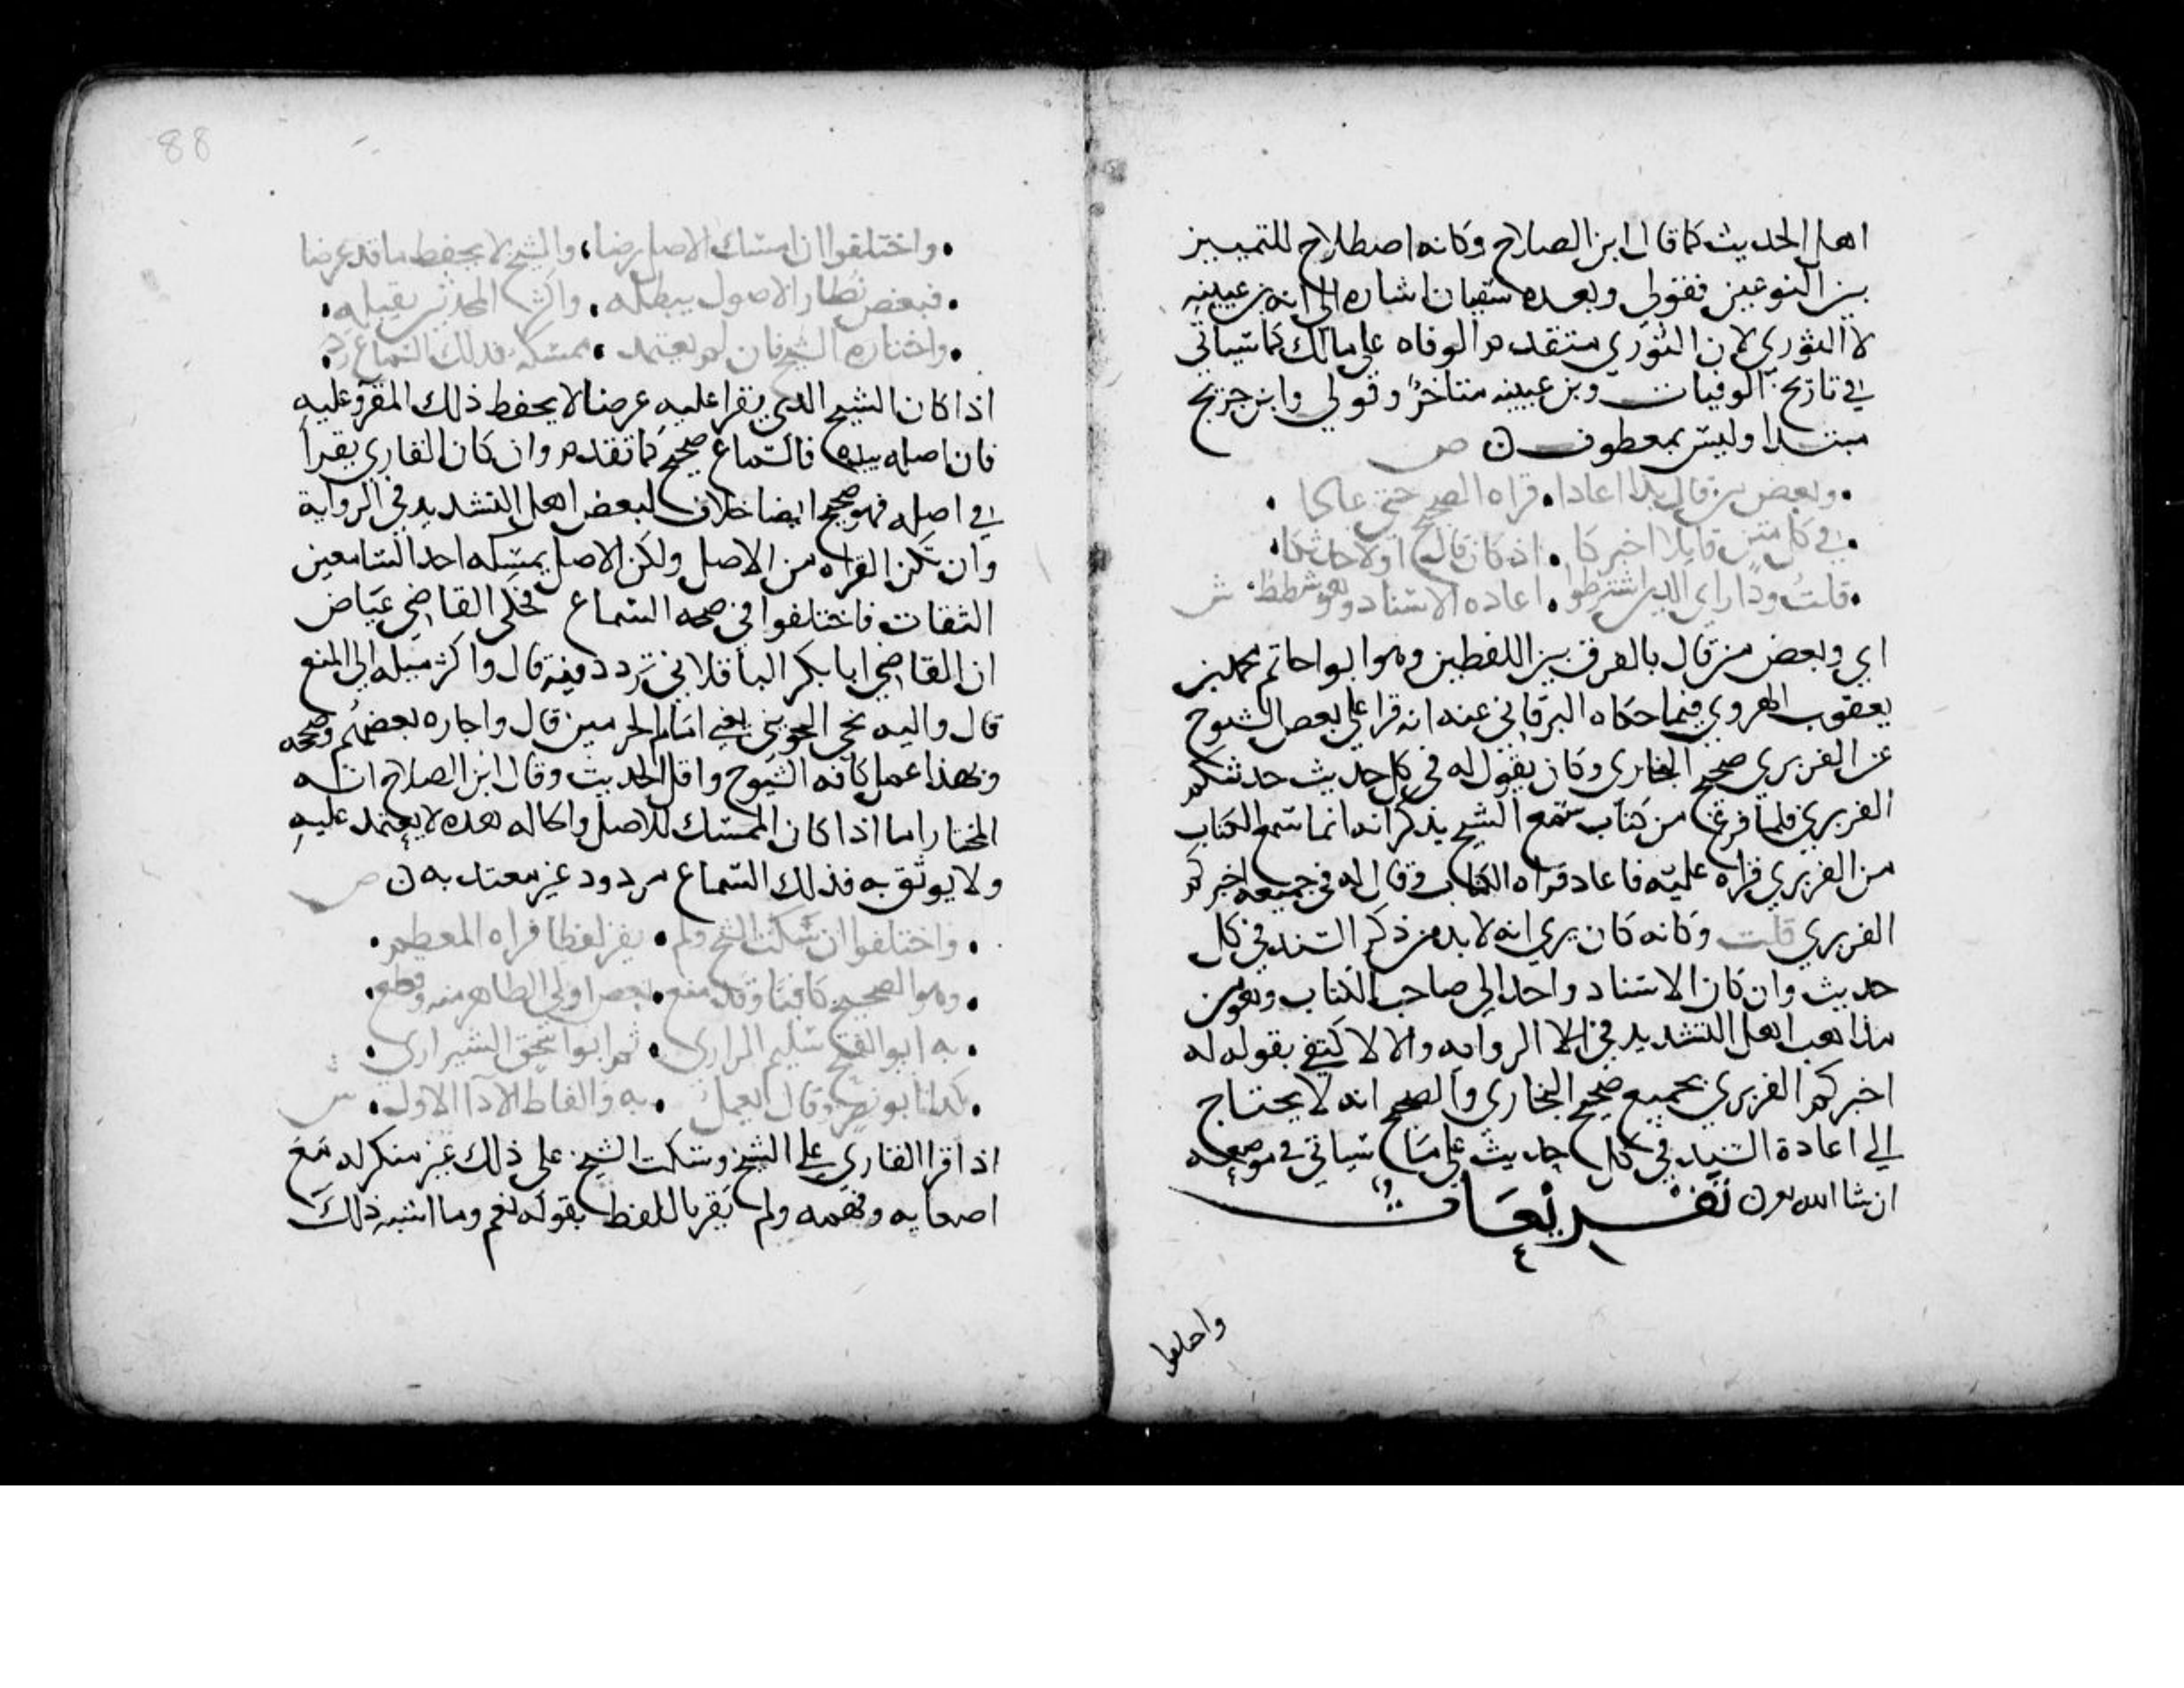 اهل الحديث كما قال ابن الصلاح وكانه اصطلاح للتمييز
بين النوعين فقولي وبعده سفيان اشاره الى انه بن عيينه
لا الثوري لان الثوري متقدم الوفاه على مالك كما سياتي
في تاريخ الوفيات وبن عيينه متاخر وقولي وابن جريج
مبتدا وليس بمعطوف ن ص
. وبعض من قال بذا اعادا . قراه الصحيح حتى عادا .
. في كل متن قايلا اخبركا . اذ كان قال اولا حدثكا .
. قلت وذا راي الذين اشترطوا . اعاده الاسناد وهو شطط . ش
اي وبعض من قال بالفرق بين اللفظين وهو ابو احاتم محمد بن
يعقوب الهروي فيما حكاه البرقاني عنه انه قرا على بعض الشيوخ
عن الفربري صحيح البخاري وكان يقول له في كل حديث حدثكم
الفربري فلما فرغ من كتاب سمع الشيخ يذكر انه انما سمع الكتاب
من الفربري قراه عليه فاعاد قراه الكتاب وقال له في جميعه اخبركم
الفربري قلت وكانه كان يري انه لا بد من ذكر السند في كل
حديث وان كان الاسناد واحدا الى صاحب الكتاب وهو من
مذاهب اهل التشديد في الروايه والا لاكتفي بقوله له
اخبركم الفربري بجميع صحيح البخاري والصحيح انه لا يحتاج
الى اعادة السند في كل حديث على ما سياتي في موضعه
ان شا الله تعالى ن تفريعات
واختلفوا
88
. واختلفوا ان امسك الاصل رضا ، والشيخ لا يحفظ ما قد عرضا
. فبعض نظار الاصول يبطله . واكثر المحدثين يقبله .
. واختاره الشيخ فان لم يعتمد . ممسكه فذلك السماع رد .
اذا كان الشيخ الذي يقرا عليه عرضا لا يحفظ ذلك المقرو عليه
فان اصله بيده فالسماع صحيح كما تقدم وان كان القاري يقرا
في اصله فهو صحيح ايضا خلاف لبعض اهل التشديد في الرواية
وان تكن القراه من الاصل ولكن الاصل يمسكه احد السامعين
الثقات فاختلفوا في صحه السماع فحكى القاضي عياض
ان القاضي ابا بكر الباقلاني تردد فيه قال واكثر ميله الى المنع
قال واليه نحى الجويني يعني امام الحرمين قال واجازه بعضهم وصححه
وبهذا عمل كافه الشيوخ واهل الحديث وقال ابن الصلاح انه
المختار اما اذا كان الممسك للاصل والحاله هذه لا يعتمد عليه
ولا يوثق به فذلك السماع مردود غير معتد به ن ص
. واختلفوا ان سكت الشيخ ولم . يقر لفظا فراه المعظم .
. وهو الصحيح كافيا وقد منع . بعض اولي الظاهر منه وقطع .
. به ابو الفتح سليم الرازي . ثم ابو اسحق الشيرازي .
. كذا ابو نصر وقال يعمل . به والفاظ الادا الاول . ش
اذا قرا القاري على الشيخ وسكت الشيخ على ذلك غير منكر له مع
اصغايه وفهمه ولم يقر باللفظ بقوله نعم وما اشبه ذلك